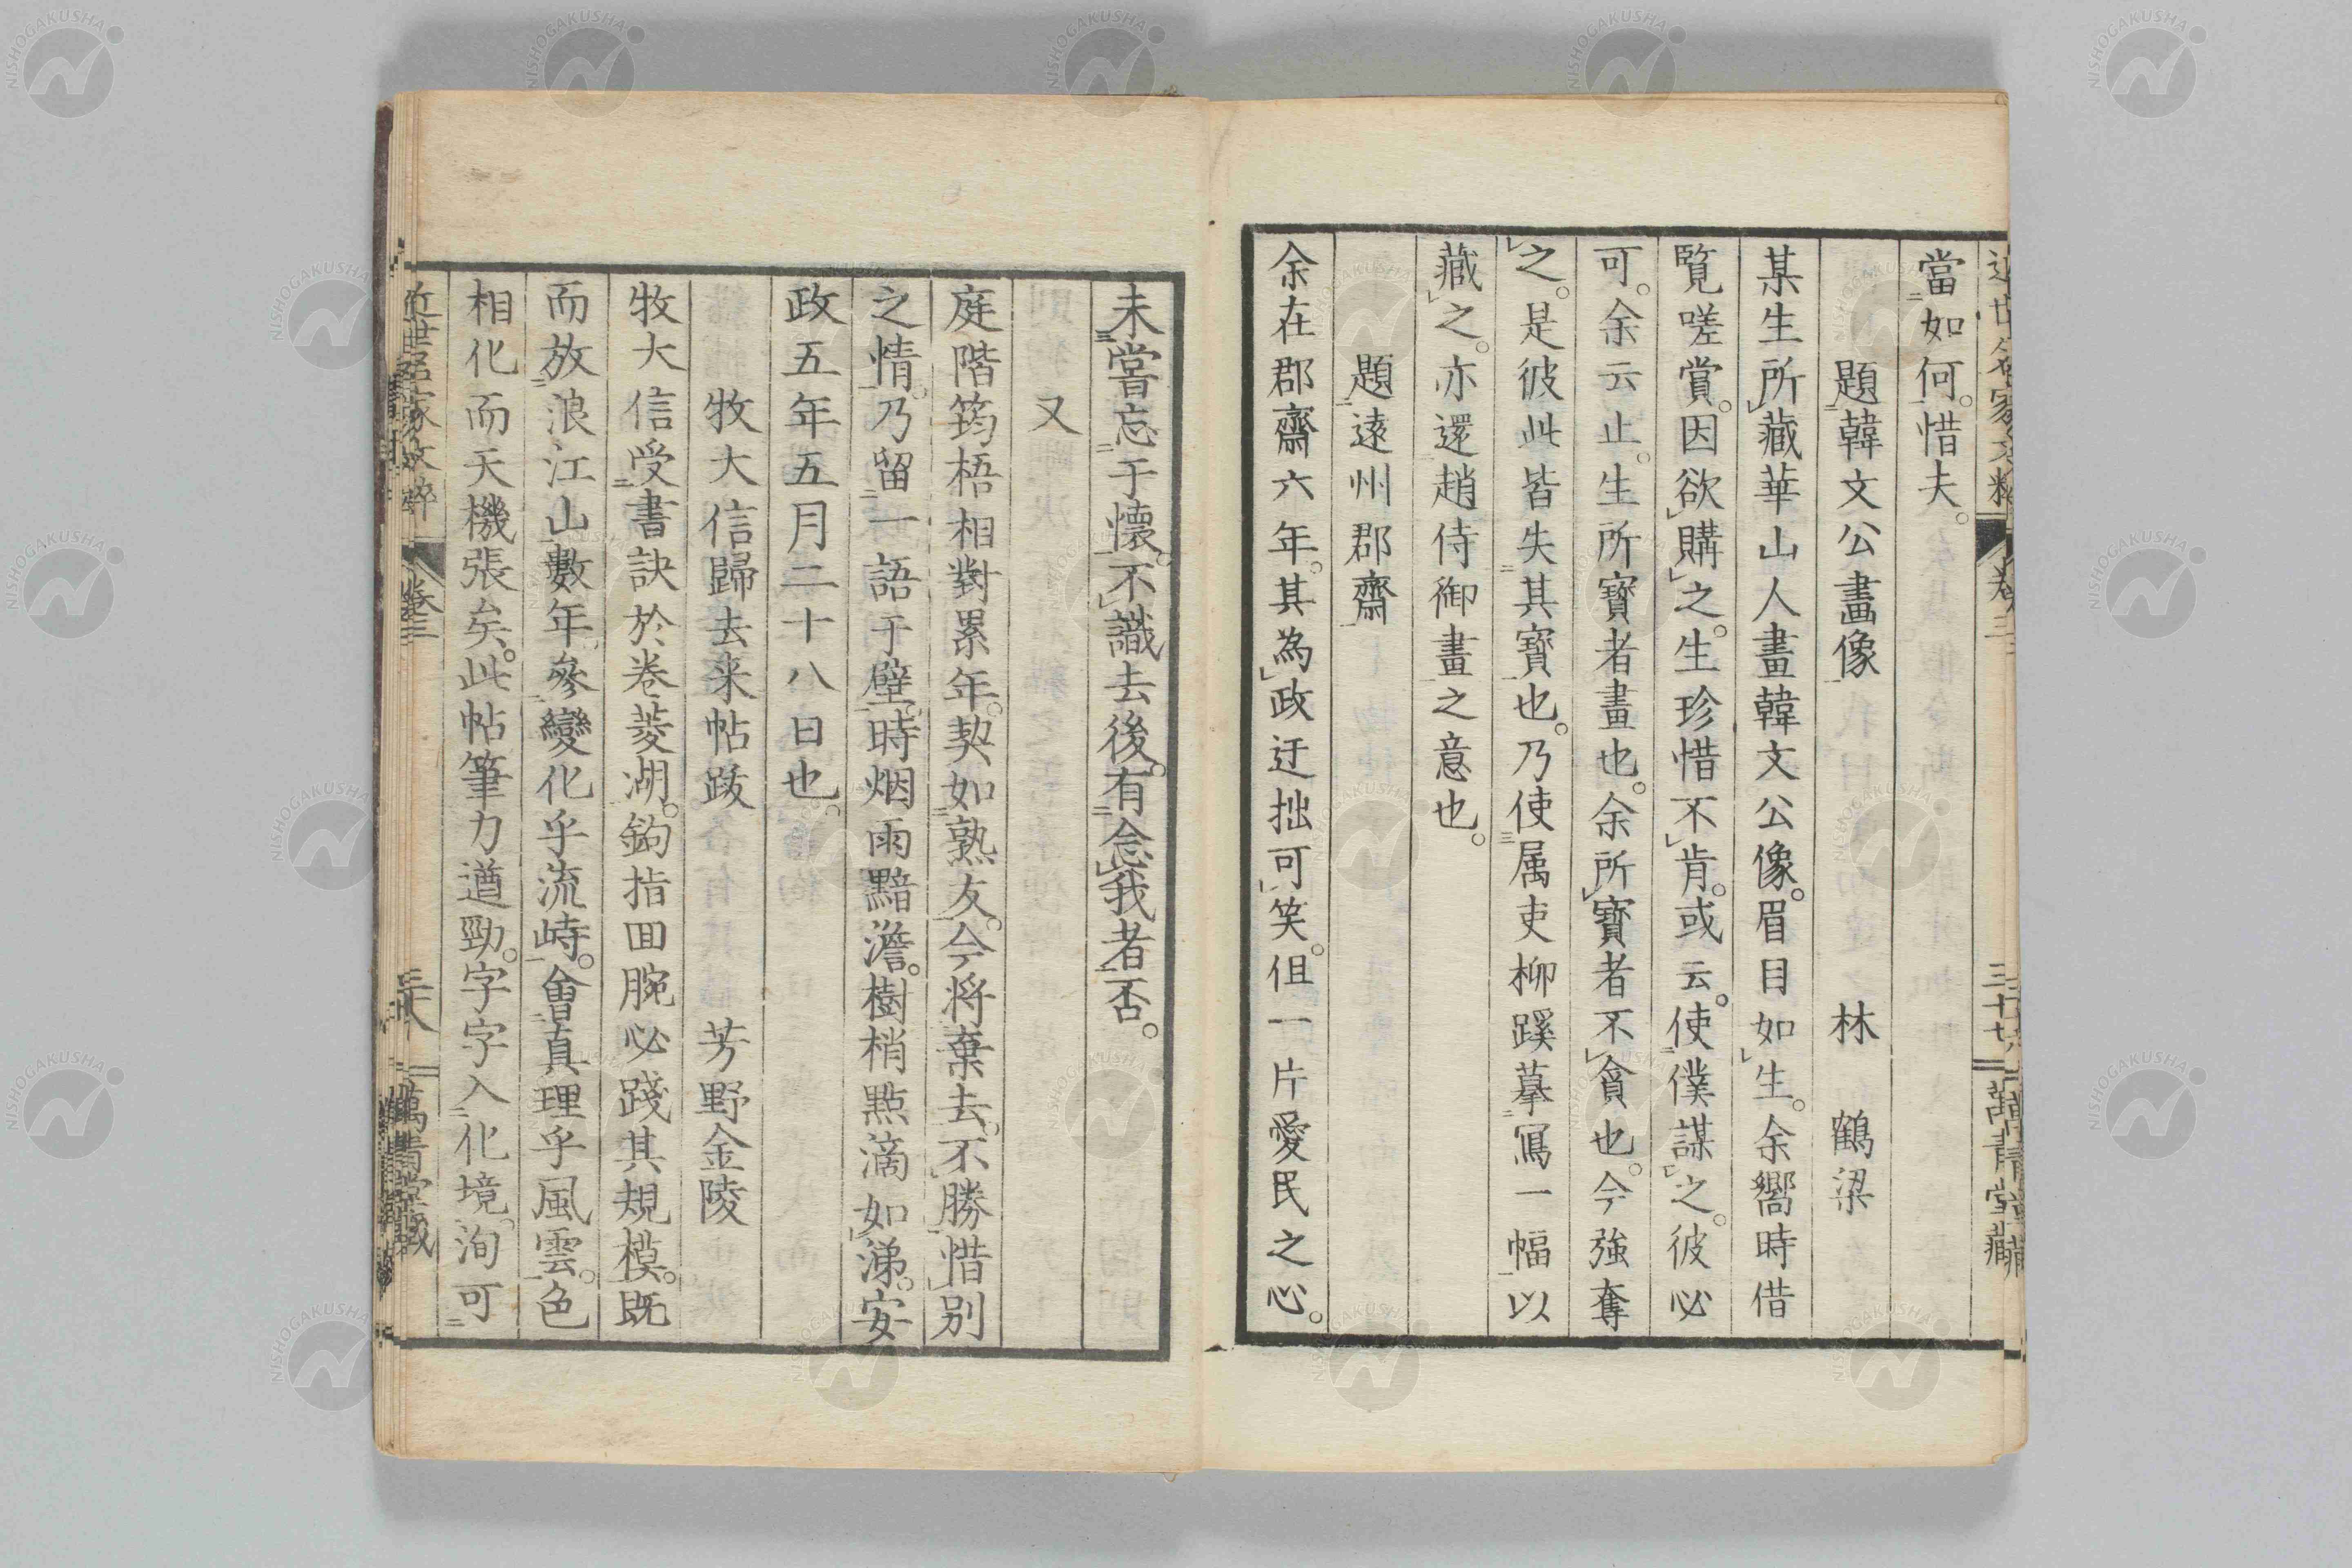 當如何。惜夫。
題韓文公畫像 林 鶴梁
某生所藏華山人畫韓文公像。眉目如生。余嚮時借
覽嗟賞。因欲購之。生珍惜不肯。或云。使僕謀之。彼必
可。余云止。生所寳者畫也。余所寳者不貪也。今強奪
之。是彼此皆失其寳也。乃使属吏柳蹊摹寫一幅以
藏之。亦還趙侍御畫之意也。
題遠州郡齋
余在郡齋六年。其為政迂拙可笑。但一片愛民之心。
未嘗忘于懷。不識去後。有念我者否。
又
庭階筠梧相對累年。契如熟友。今將棄去。不勝惜別
之情。乃留一語于壁。時烟雨黯澹。樹梢點滴如涕。安
政五年五月二十八日也。
牧大信歸去来帖跋 芳野金陵
牧大信受書訣於卷菱湖。鉤指回腕必踐其規模。既
而放浪江山數年。參變化乎流峙。會真理乎風雲。色
相化而天機張矣。此帖筆力遒勁。字字入化境。洵可
近世名家文粹 卷三 三十八 萬青堂藏